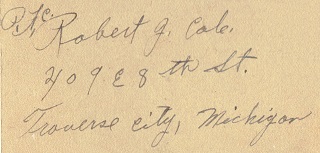 Pfc.
Robert J. Cole.
409 E 8th St.
Traverse City, Michigan